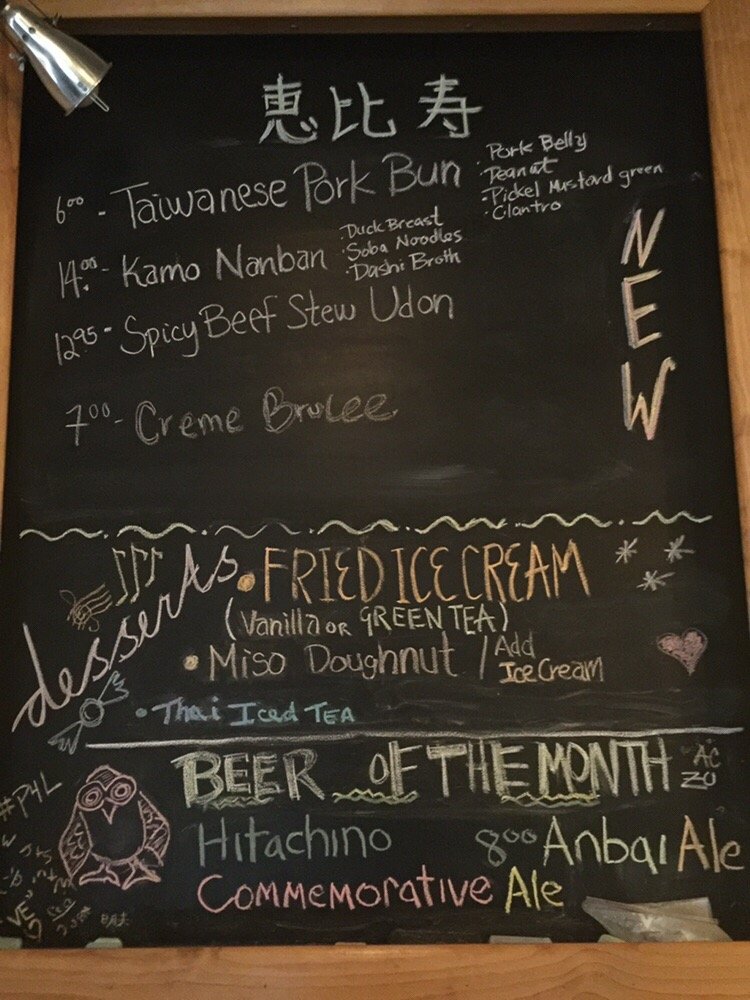 恵比寿
6.00 - Taiwanese Pork Bun
· Pork Belly
· Peanut
· Pickel Mustard green
· Cilantro
14.00 - Kamo Nanban
· Duck Breast
· Soba Noodles
· Dashi Broth
12.95 - Spicy Beef Stew Udon
7.00 - Creme Brulee
NEW
desserts
• FRIED ICE CREAM
(Vanilla OR GREEN TEA)
• Miso Doughnut / Add Ice Cream
• Thai Iced TEA
BEER OF THE MONTH
Hitachino 8.00 Anbai Ale
Commemorative Ale
#P4L